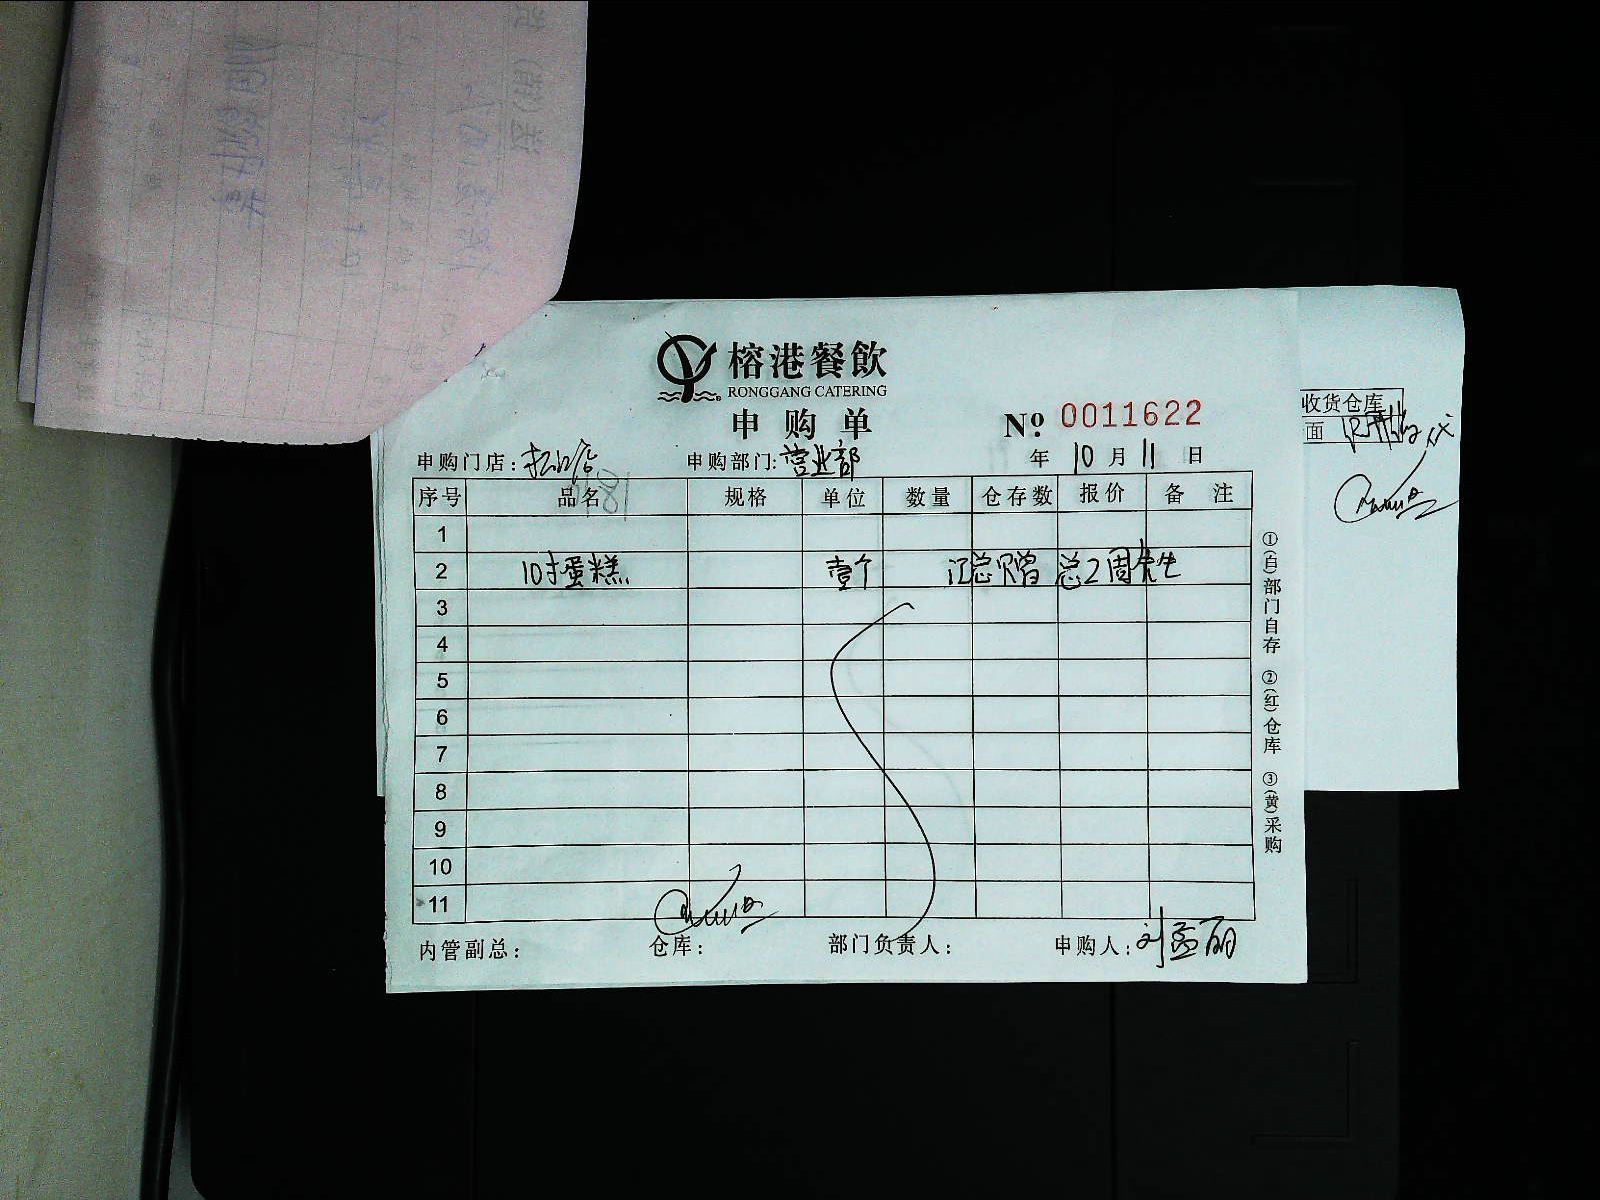 榕港餐飲
RONGGANG CATERING
申购单
№ 0011622
申购门店: 申购部门: 营业部 年 10 月 11 日
序号 品名 规格 单位 数量 仓存数 报价 备 注
1
2 10寸蛋糕 壹个 江总贈 总2周先生
3
4
5
6
7
8
9
10
11
内管副总: 仓库: 部门负责人: 申购人:
①(白)部门自存 ②(红)仓库 ③(黄)采购
收货仓库
面